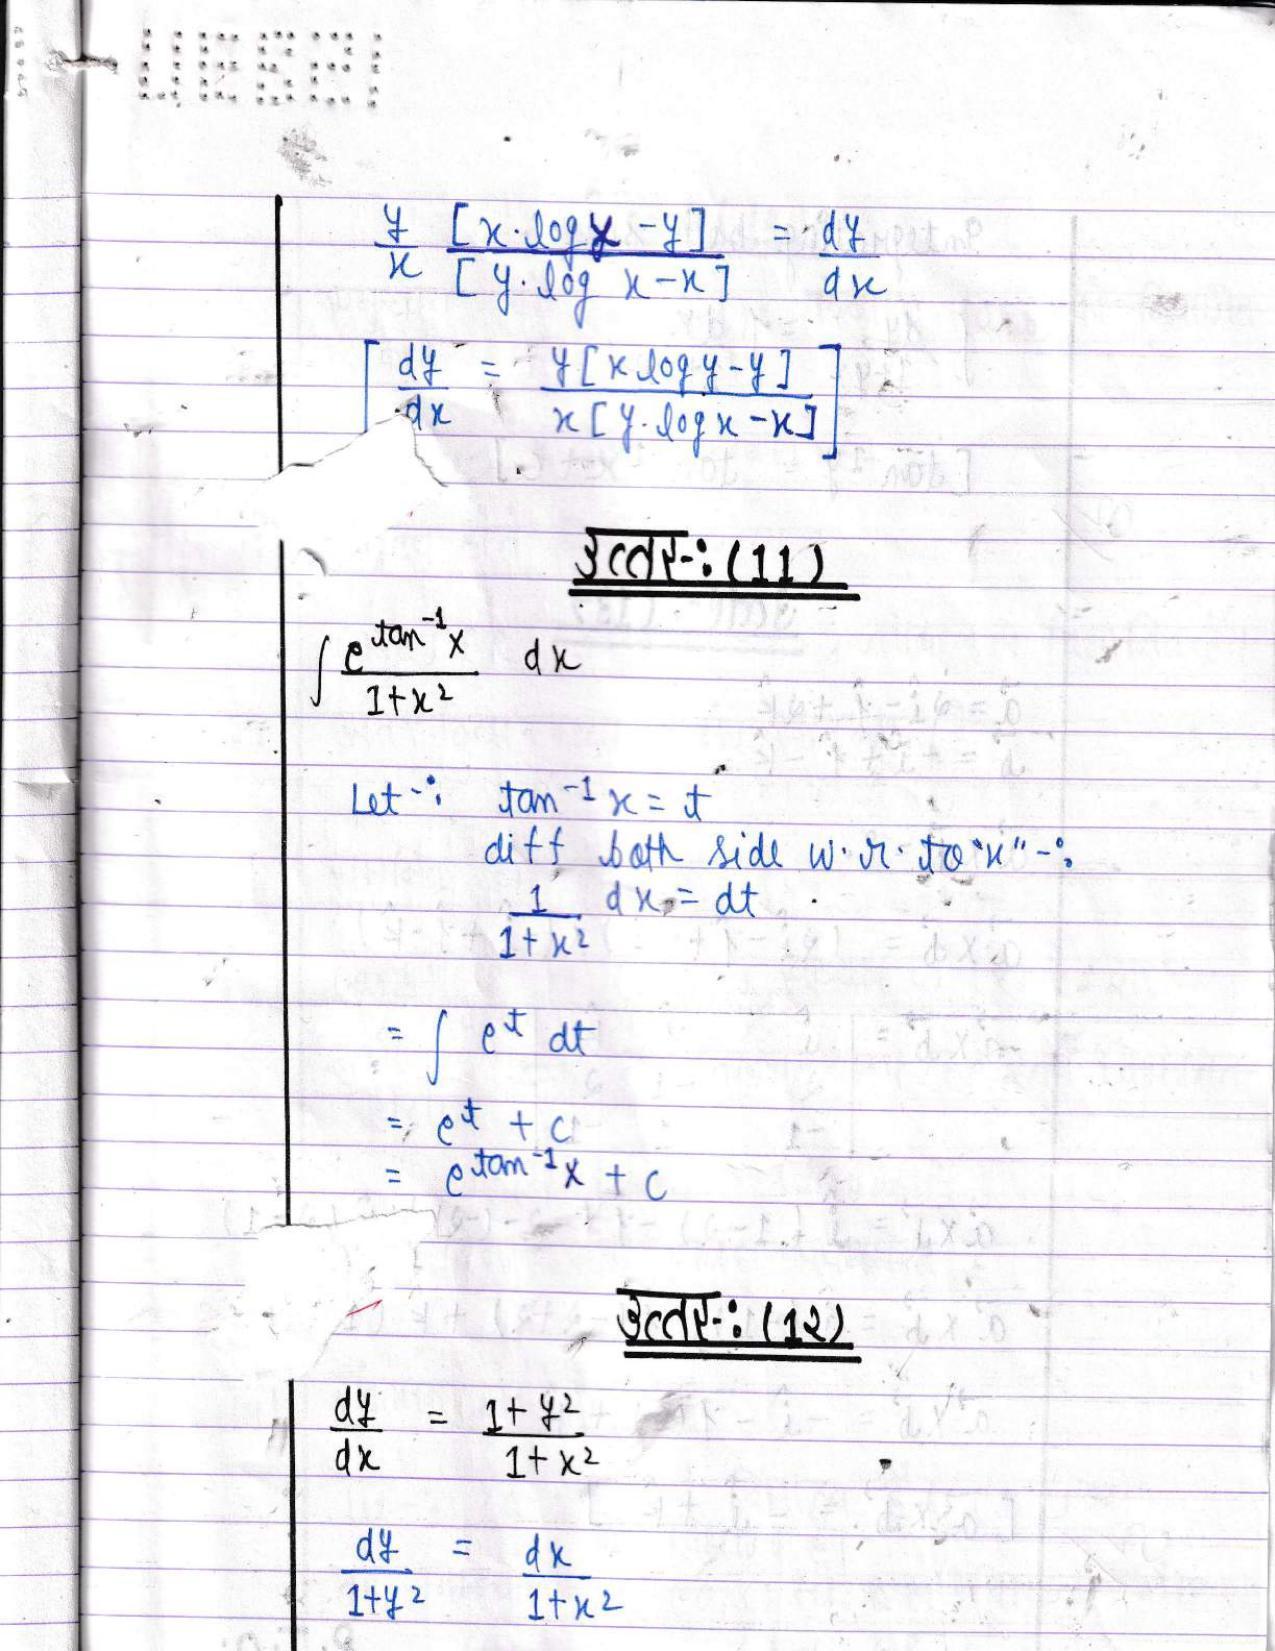 y/x [x·log y - y] / [y·log x - x] = dy/dx
[ dy/dx = y[x log y - y] / x[y·log x - x] ]
उत्तर-: (11)
∫ e^tan⁻¹x / 1+x² dx
Let-: tan⁻¹ x = t
diff both side w.r. to "x"-:
1/1+x² dx = dt
= ∫ e^t dt
= e^t + c
= e^tan⁻¹x + c
उत्तर-: (12)
dy/dx = 1+y² / 1+x²
dy/1+y² = dx/1+x²